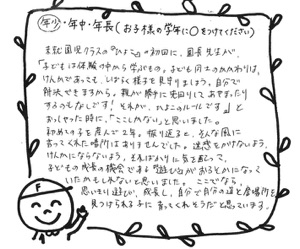 年少・年中・年長(お子様の学年に○をつけてください)
未就園児クラスの『ひよこ』の初回に、園長先生が、
「子どもは体験の中から学ぶもの。子ども同士のかかわりは、
けんかであっても、しばらく様子を見守りましょう。自分で
解決できますから。親が勝手に先回りしてあやまったり
するのもなしです! それが、ひよこのルールです」と
おっしゃた時に、「ここしかない」と思いました。
初めの子を産んで2年。振り返ると、そんな風に
育ってくれた場所はありませんでした。迷惑をかけないよう、
けんかにならないよう、そればかりに気を配って、
子どもの成長の機会である遊びがあるそかになって
いたかもしれないと思いました。ここでなら、
思いきり遊び、成長し、自分で自分の道と居場所を
見つけられる子に育ってくれそうだと思っています。
F